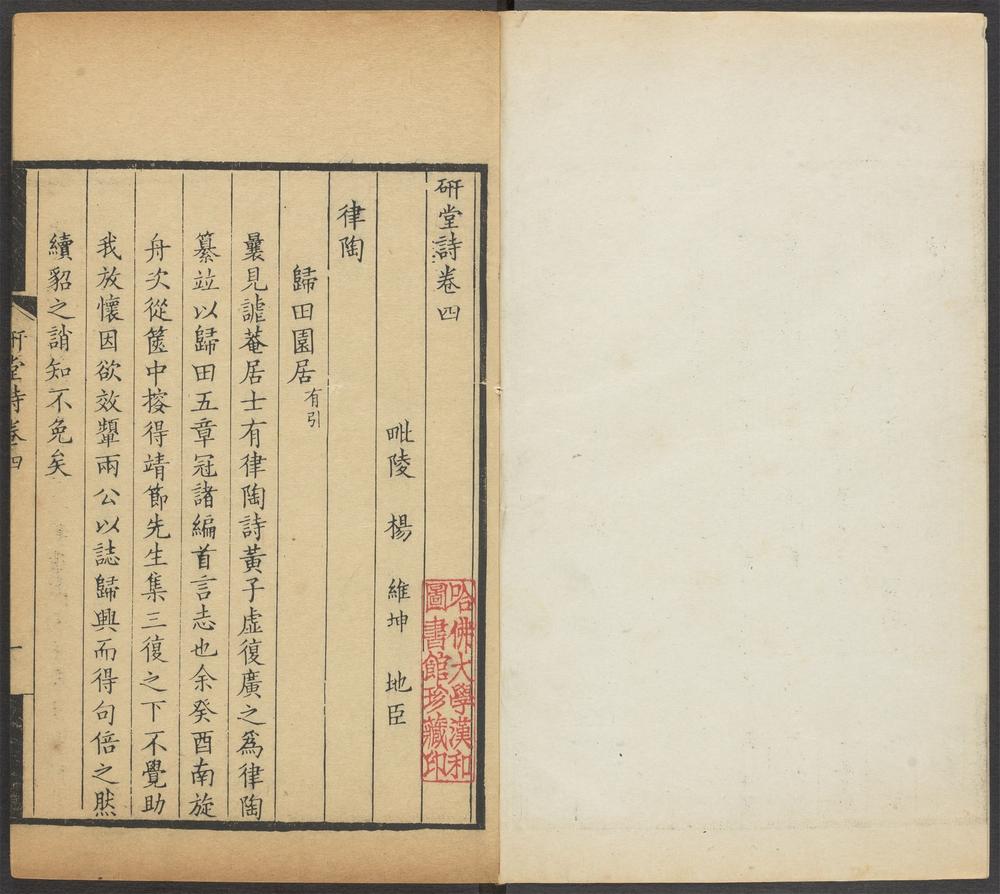 硏堂詩卷四
毗陵 楊 維坤 地臣
律陶
歸田園居有引
曩見謔菴居士有律陶詩黃子虛復廣之爲律陶
纂竝以歸田五章冠諸編首言志也余癸酉南旋
舟次從篋中搿得靖節先生集三復之下不覺助
我放懷因欲效顰兩公以誌歸興而得句倍之然
續貂之誚知不免矣
硏堂詩卷四
一
哈佛大學漢和
圖書館珍藏印